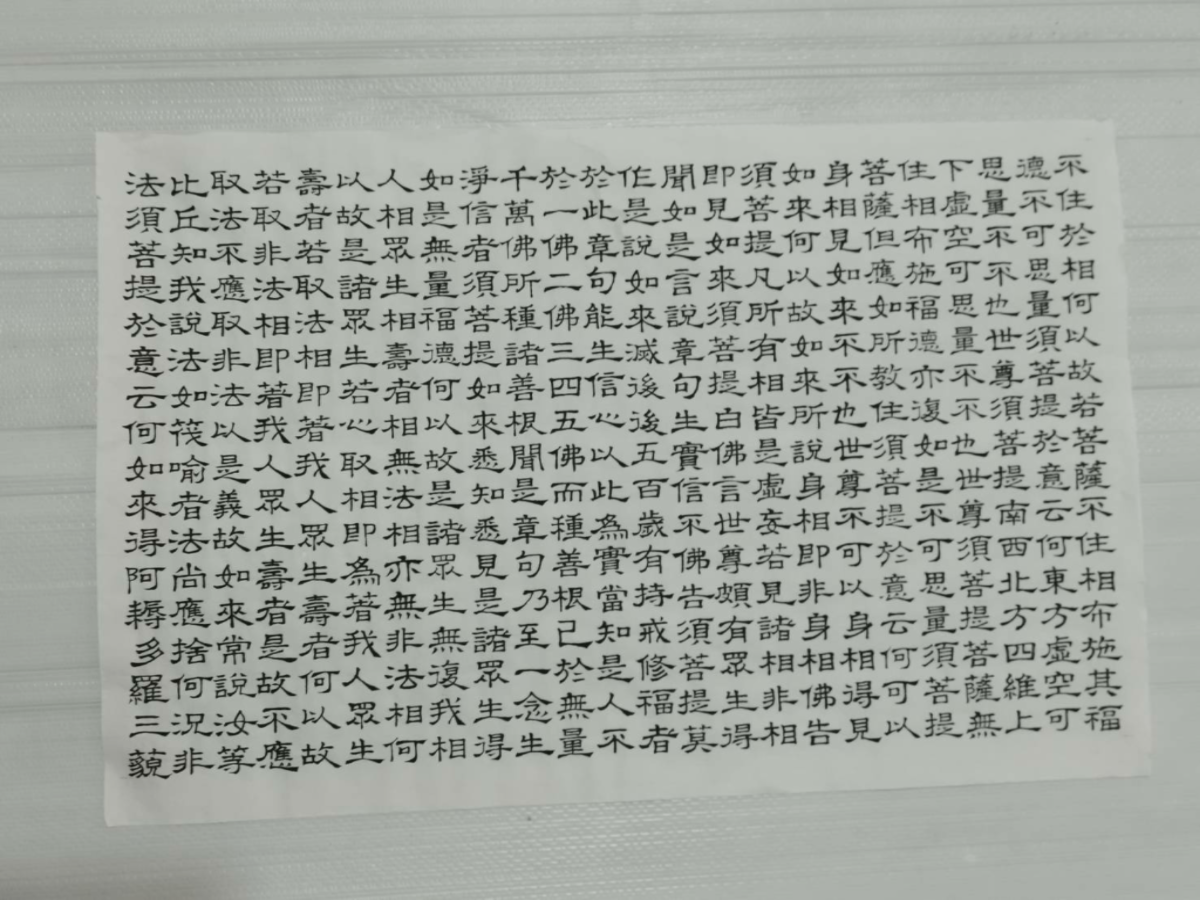 不住於相何以故若菩薩不住相布施其福
德不可思量須菩提於意云何東方虛空可
思量不不也世尊須菩提南西北方四維上
下虛空可思量不不也世尊須菩提菩薩無
住相布施福德亦復如是不可思量須菩提
菩薩但應如所教住須菩提於意云何可以
身相見如來不不也世尊不可以身相得見
如來何以故如來所說身相即非身相佛告
須菩提凡所有相皆是虛妄若見諸相非相
即見如來須菩提白佛言世尊頗有眾生得
聞如是言說章句生實信不佛告須菩提莫
作是說如來滅後後五百歲有持戒修福者
於此章句能生信心以此為實當知是人不
於一佛二佛三四五佛而種善根已於無量
千萬佛所種諸善根聞是章句乃至一念生
淨信者須菩提如來悉知悉見是諸眾生得
如是無量福德何以故是諸眾生無復我相
人相眾生相壽者相無法相亦無非法相何
以故是諸眾生若心取相即為著我人眾生
壽者若取法相即著我人眾生壽者何以故
若取非法相即著我人眾生壽者是故不應
取法不應取非法以是義故如來常說汝等
比丘知我說法如筏喻者法尚應捨何況非
法須菩提於意云何如來得阿耨多羅三藐